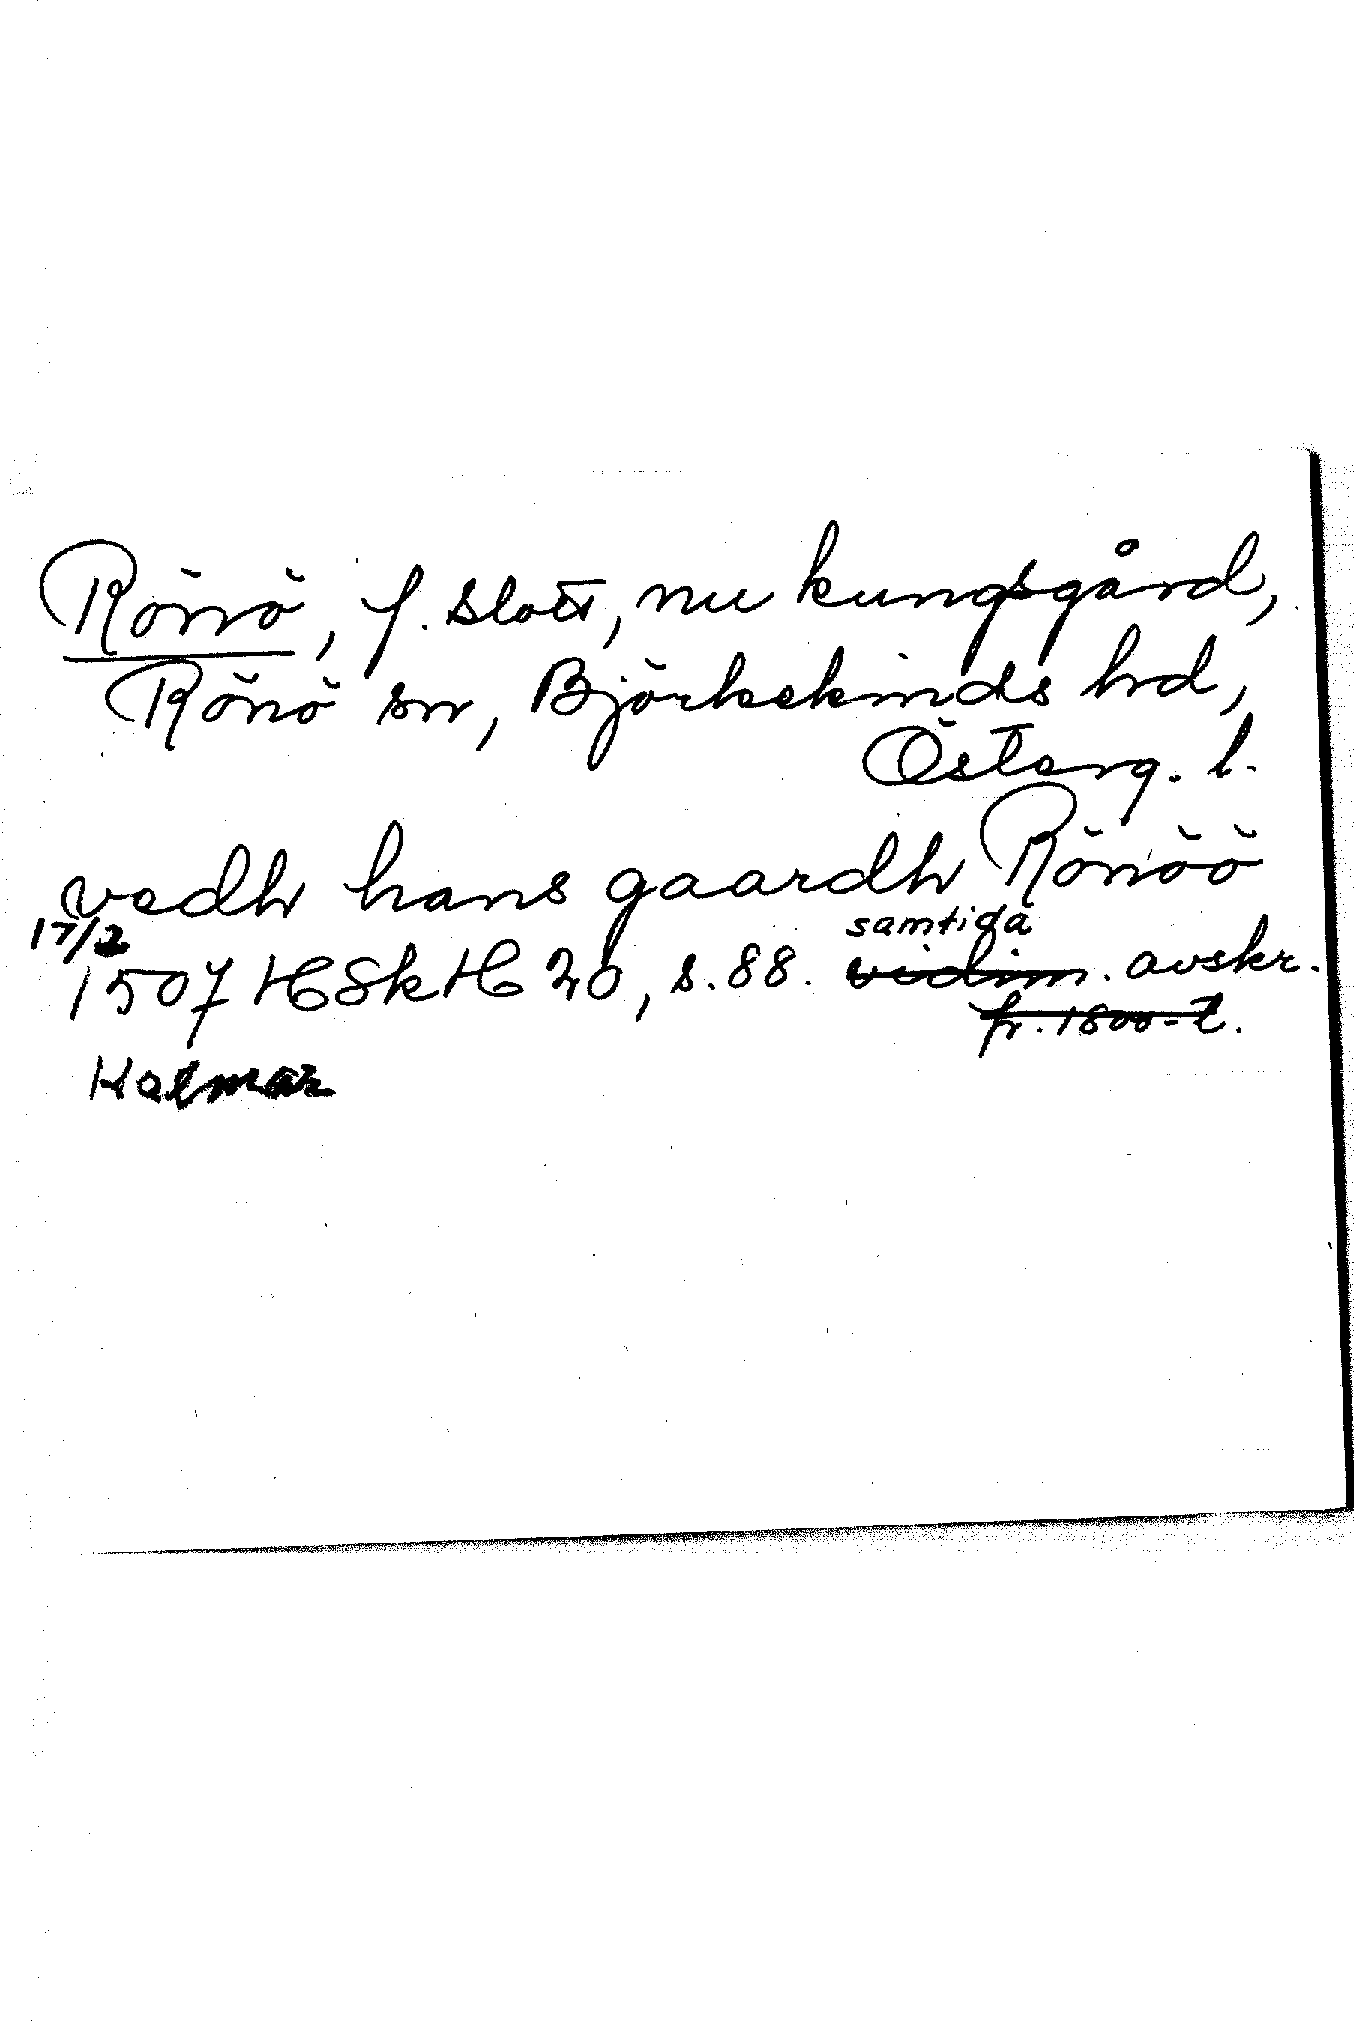 Rönö, f. slott, nu kungsgård,
Rönö sn, Björkekinds hd,
Österg. l.
vedh hans gaardh Rönöö
17/2 samtida
1507 HSkH 20, s. 88. vidim. avskr.
fr. 1800-t.
Kalmar